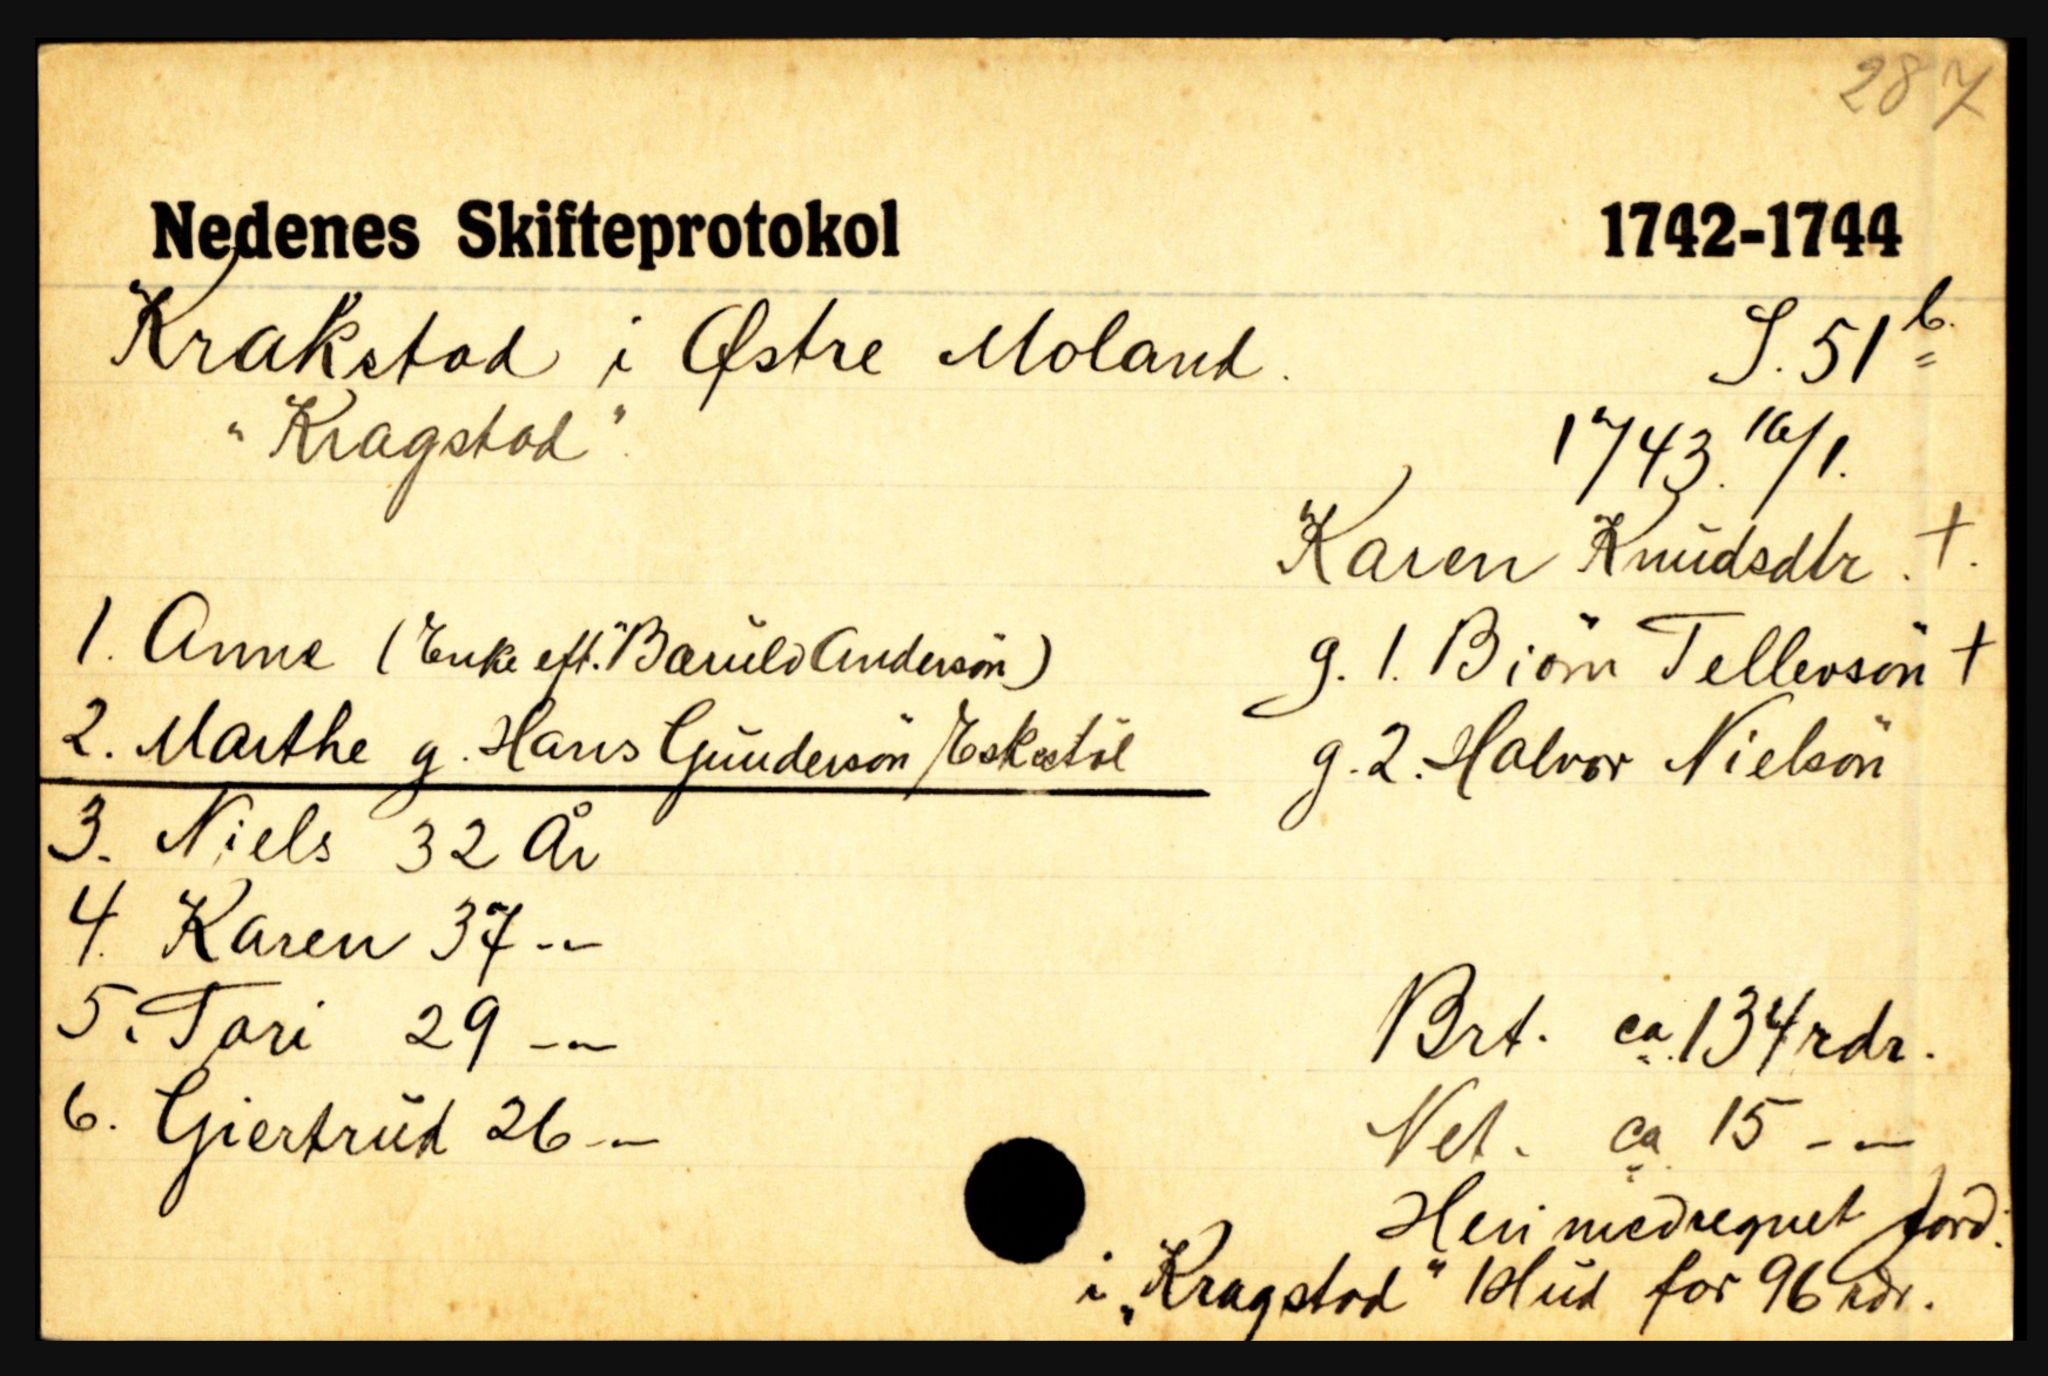 287
Nedenes Skifteprotokol 1742-1744
Krakstad i Østre Moland. S. 51 b.
"Kragstad". 1743. 16/1.
Karen Knudsdtr. +.
1. Anne (Enke eft. Barulv Andersön) g. 1. Biörn Tellevsön +
2. Marthe g. Hans Gundersön Eskestöl g. 2. Halvor Nielsön
3. Niels 32 År
4. Karen 37 -"-
5. Tari 29 -"-
6. Giertrud 26 -"-
Brt. ca. 134 rdr.
Net. ca 15 -"-
Heri medregnet Jord:
i "Kragstad" 1 Hud for 96 rdr.